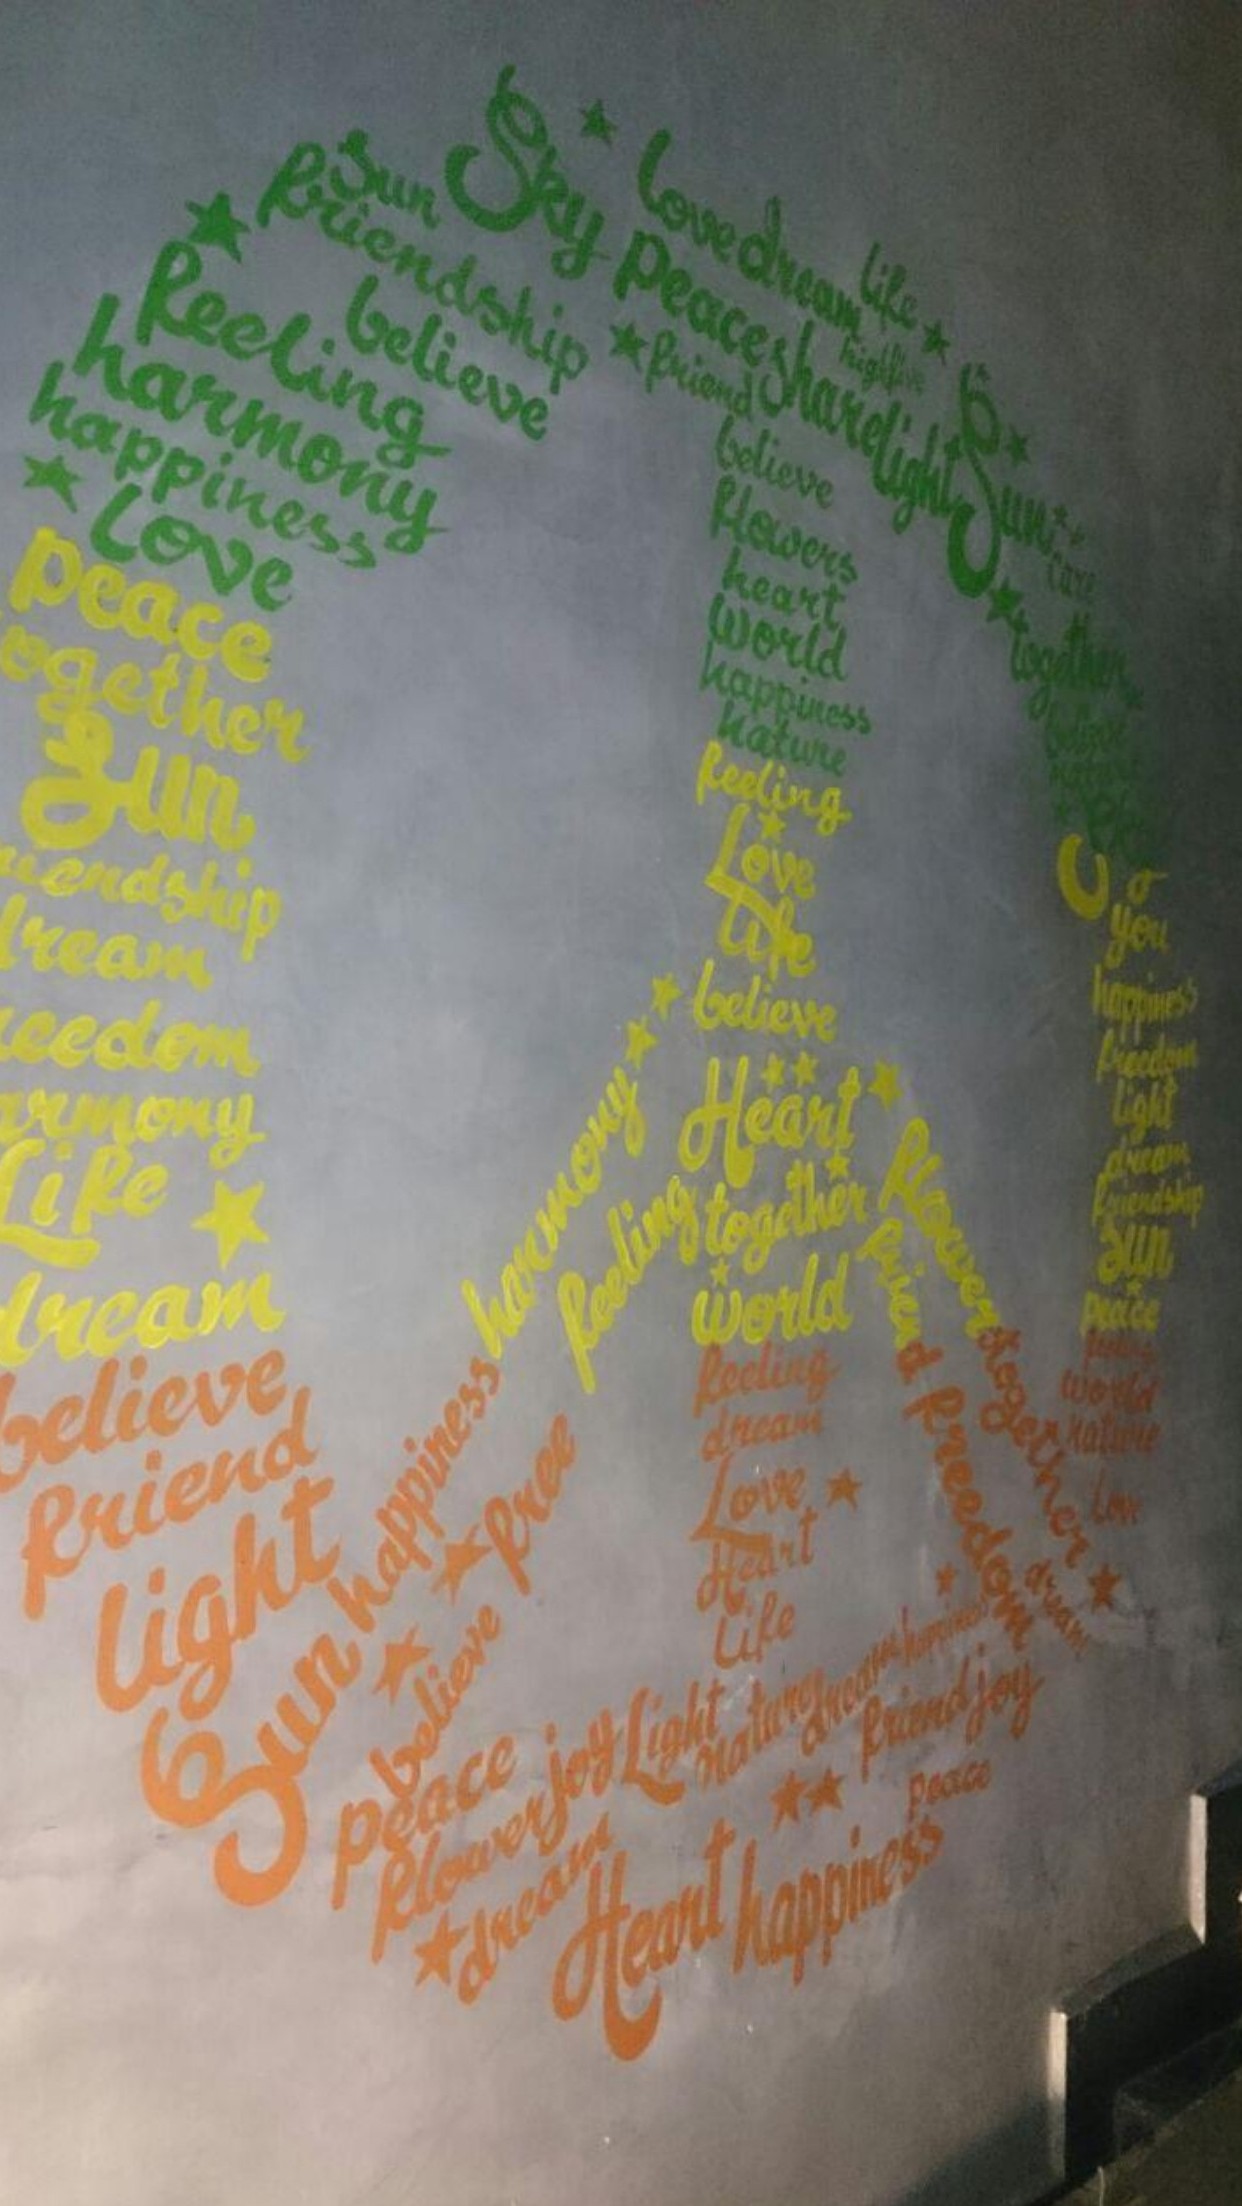 Sky
Sun
friendship
believe
feeling
harmony
happiness
love
peace
together
Sun
friendship
dream
freedom
harmony
Life
dream
believe
friend
light
Sun
love dream
life
peace share light
friend
Sun
care
together
believe
flowers
heart
world
happiness
nature
feeling
Love
Life
believe
Heart
together
world
feeling
dream
Love
Heart
Life
harmony
happiness
feeling
free
believe
flower
together
dream
friend
freedom
you
happiness
freedom
light
dream
friendship
sun
peace
feeling
world
nature
Love
peace
joy Light
happiness
flower
friend joy
dream
Heart happiness
peace